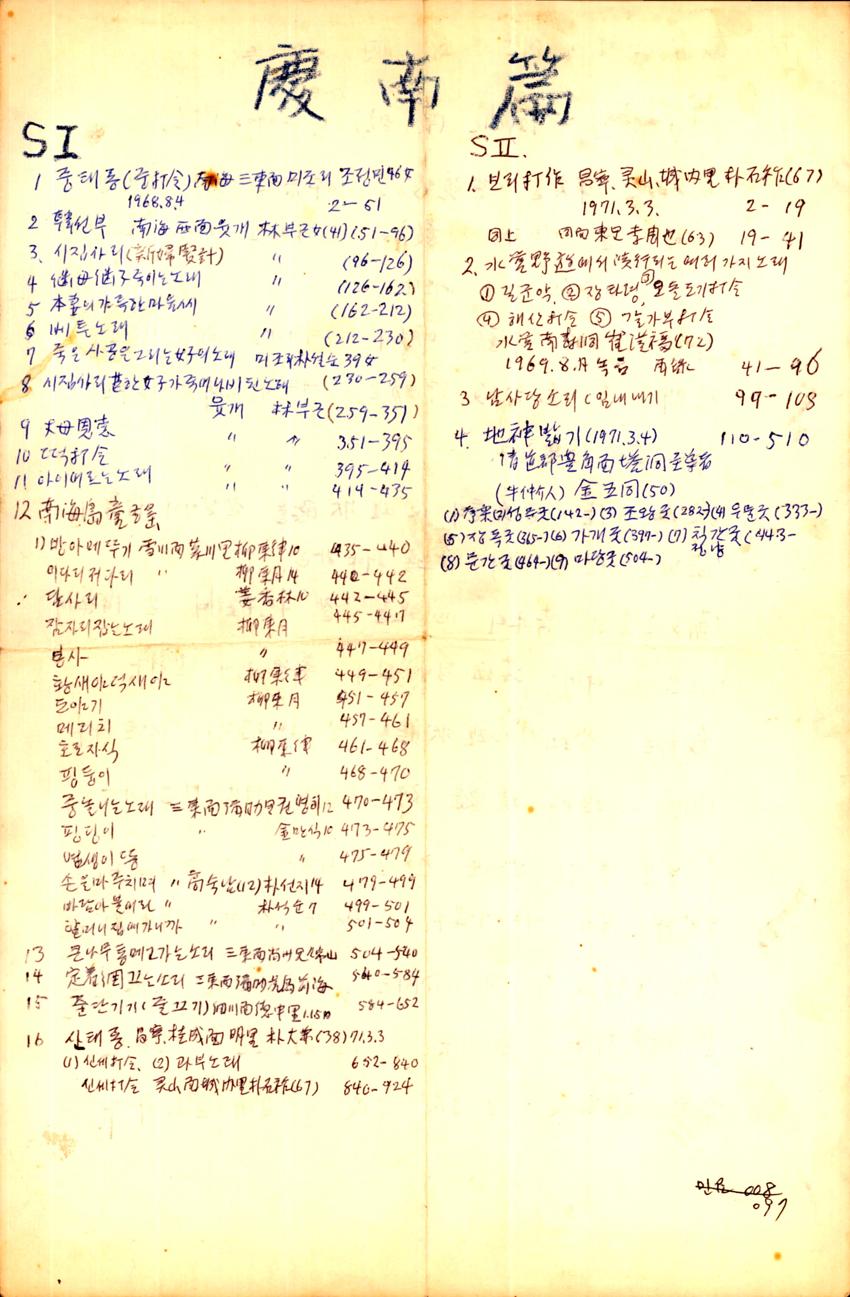 慶南篇
SI
1 중태풍(중打令) 南海 三東面 미조리 조정민 46女
1968.8.4 2-51
2 韓선부 南海 西面 뭇개 林부근女(41) (51-96)
3. 시집사리(新婦設計) 〃 (96-126)
4 継母継子죽이는노래 〃 (126-162)
5 本妻의 가득한마음씨 〃 (162-212)
6 베틀노래 〃 (212-230)
7 죽은 사공을그리는女子의노래 미조리 39女
8 시집사리 한女子가죽어나비된노래 (230-259)
뭇개 林부근(259-351)
9 父母恩惠 〃 〃 351-395
10 떡打令 〃 〃 395-414
11 아이어르는노래 〃 〃 414-435
12 南海島童謠
1) 방아메뚜기 雪川面 川里 柳東律10 435-440
이다리저다리 〃 柳東月14 440-442
달사리 姜香林10 442-445
잠자리잡는노래 柳東月 445-447
봉사 〃 447-449
황새야덕새야 柳東律 449-451
柳東月 451-457
메리치 〃 457-461
호로자식 柳東律 461-468
핑둥이 〃 468-470
중놀리는노래 三東面 12 470-473
핑딩이 〃 金만식10 473-475
〃 475-479
손을마주치며 〃 高숙남(12) 朴선지14 479-499
바람아불어라 〃 朴석순7 499-501
할머니집에가니까 〃 〃 501-504
13 큰나무통메고가는소리 三東面 504-540
14 定着網끄는소리 三東面 540-584
15 줄단기기(줄끄기) 面 里 1.15日 584-652
16 산태풍. 昌寧. 桂成面 明里 朴大 (38) 71.3.3
(1) 신세打令. (2) 과부노래 652-840
신세打令 灵山面城内里朴石祚(67) 840-924
SII.
1. 보리打作 昌寧. 灵山. 城内里 朴石祚(67)
1971.3.3. 2-19
同上 同面東里李周也(63) 19-41
2. 水營野遊에서 演行되는 여러가지노래
① 길군악, ② 장타령, ③ 오돌또기打令
④ 해산打令 ⑤ 갈가부打令
水營南壽洞 崔漢福(72)
1969.8.月 녹음 再 41-96
3 남사당소리 (일내매기 99-109
4. 地神밟기 (1971.3.4) 110-510
清道郡豊角面
金五同(50)
(1) (2)성주굿(142-) (3) 조왕굿(282) (4) 우물굿(333-)
(5) 장독굿(365-) (6) 가개굿(397-) (7) 칙간굿(443-
(8) 문간굿(464-) (9) 마당굿(504-)
민요 008
097